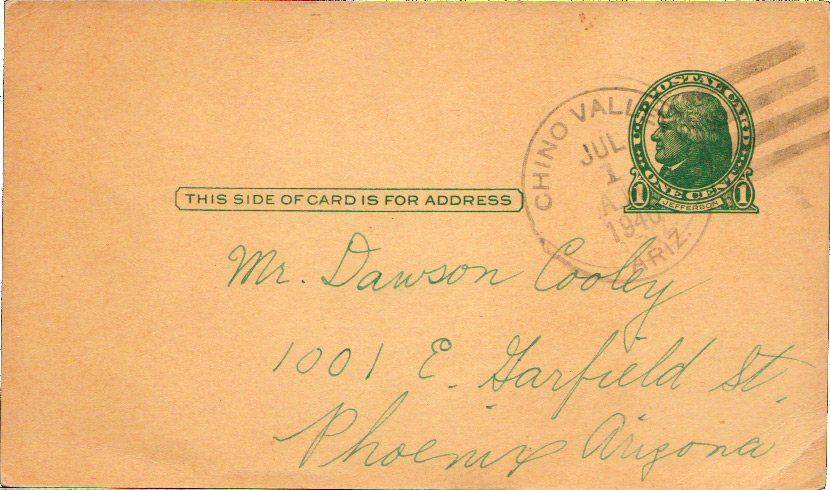 U.S. POSTAL CARD
ONE CENT
1 JEFFERSON 1
CHINO VALL
JUL
1
A
1940
ARIZ.
THIS SIDE OF CARD IS FOR ADDRESS
Mr. Dawson Cooley
1001 E. Garfield St.
Phoenix Arizona